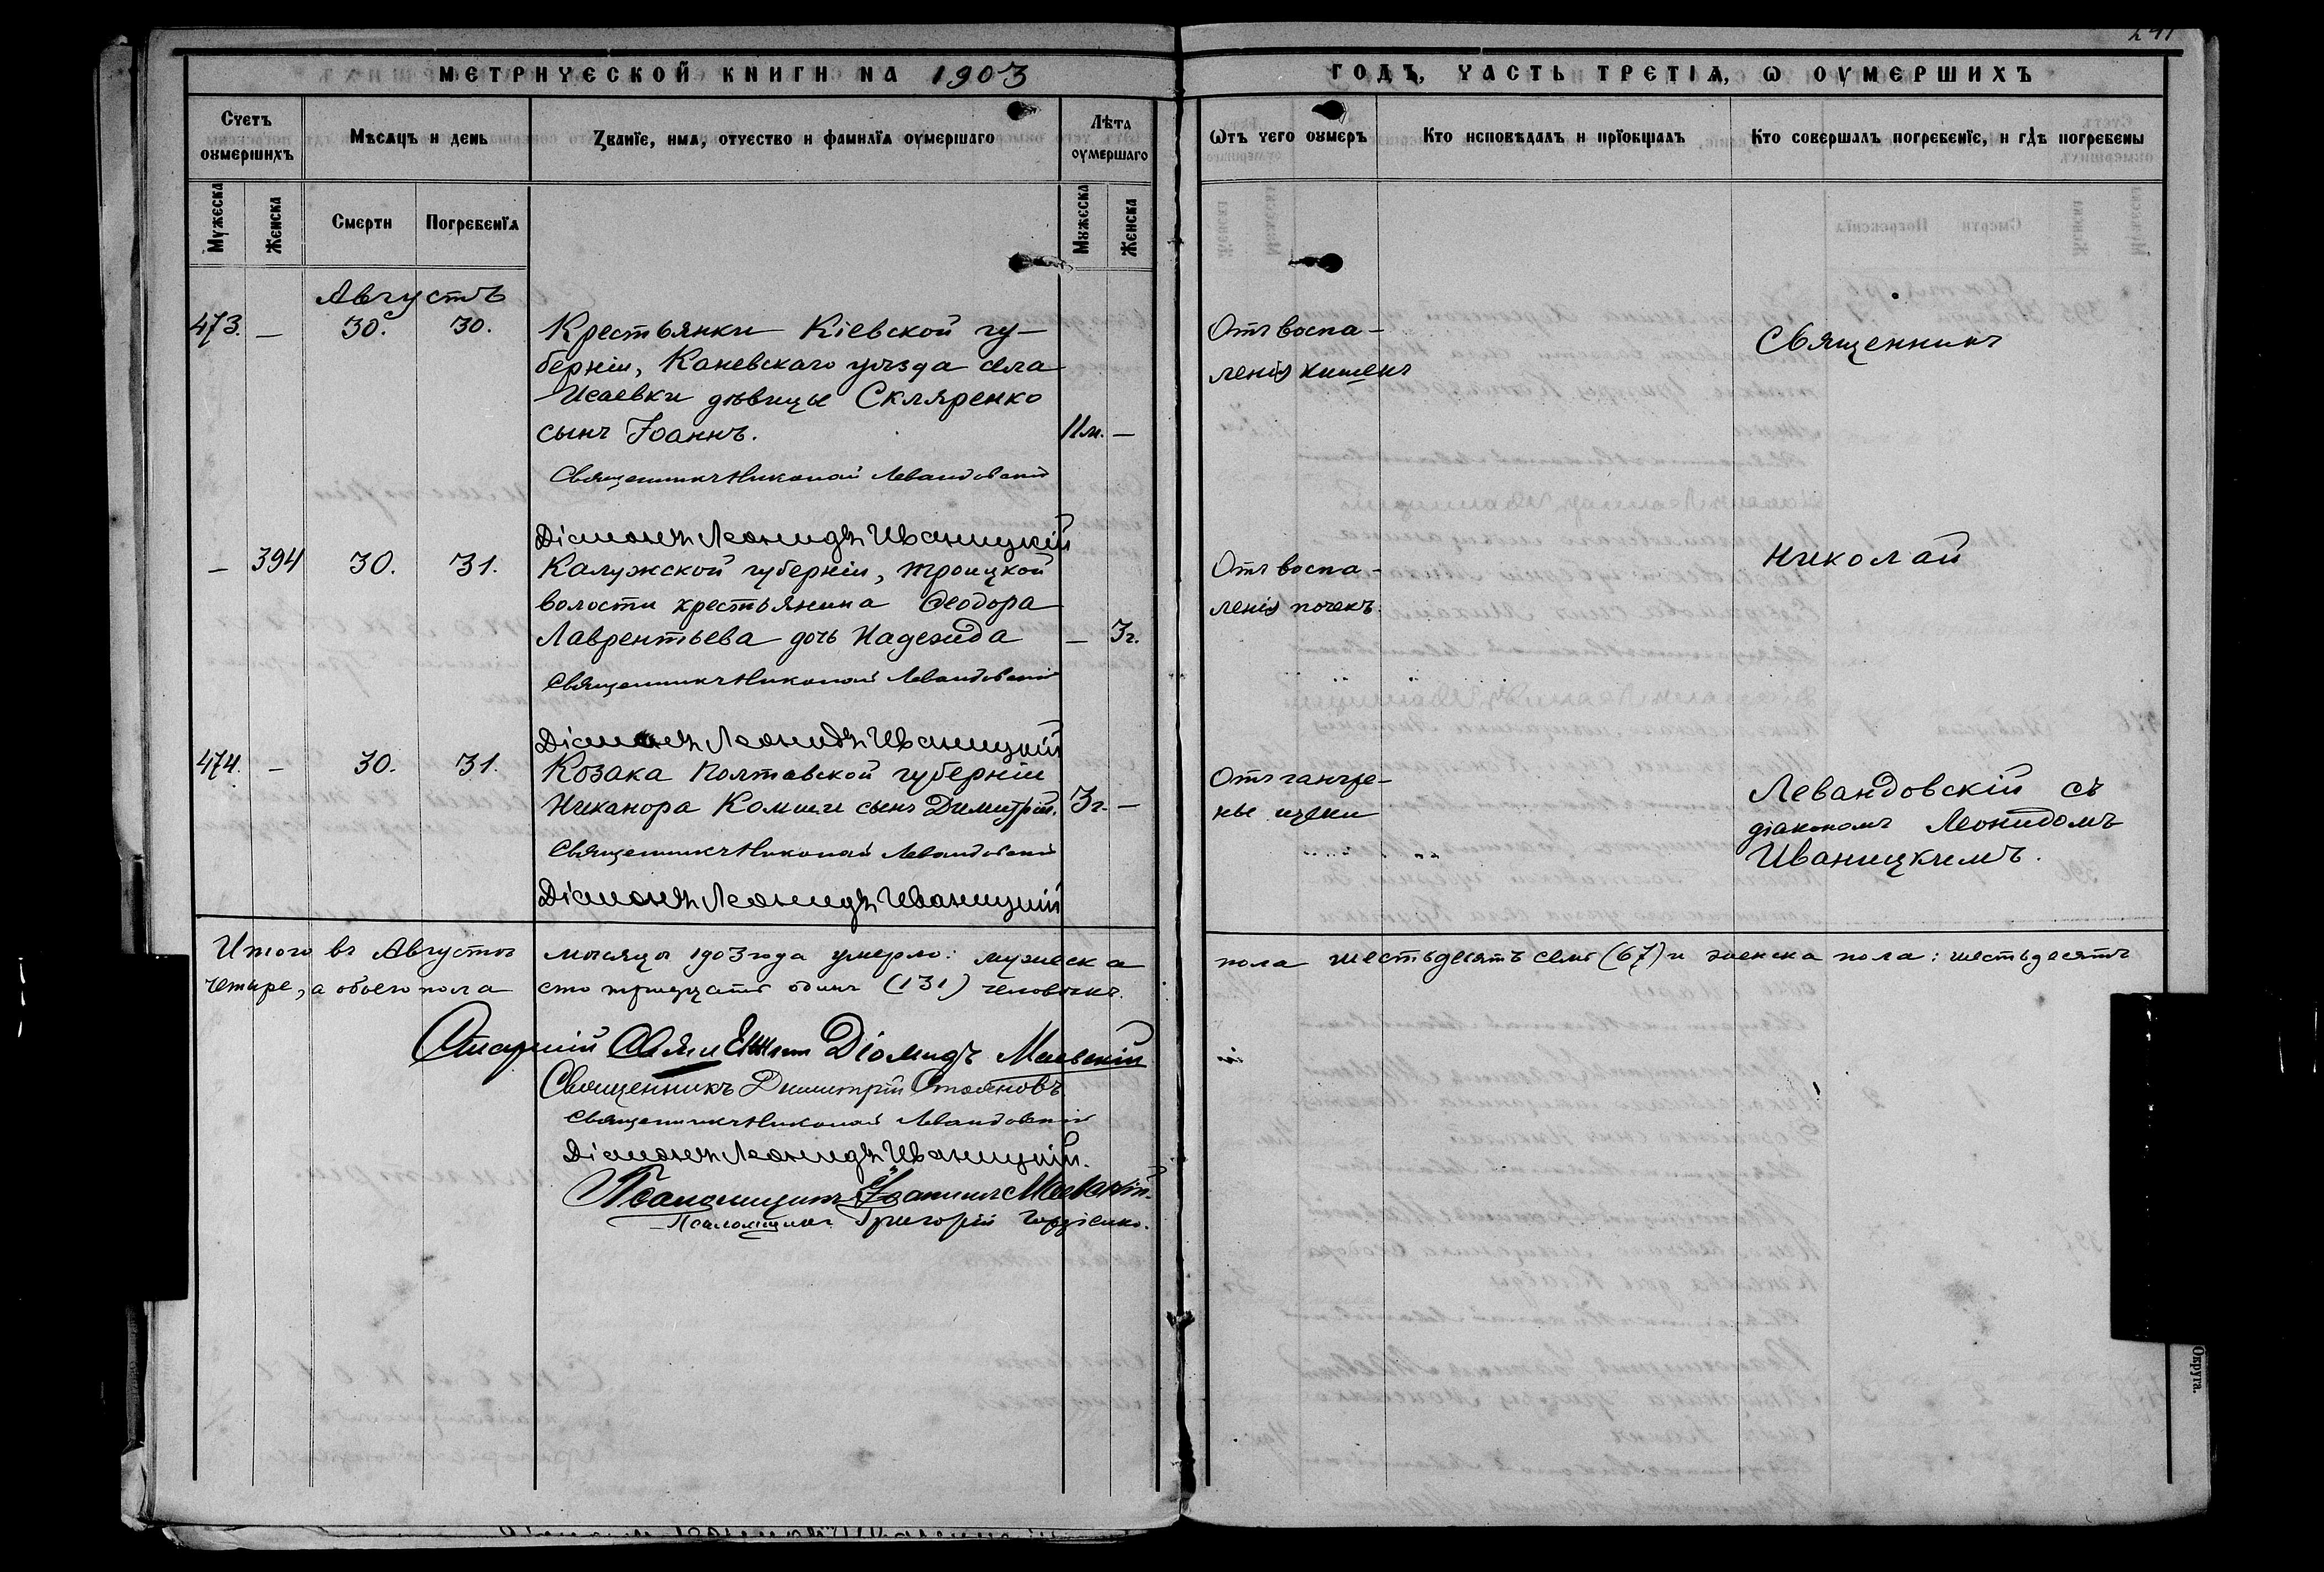 МЕТРИЧЕСКОЙ КНИГИ НА 1903
Счетъ оумершихъ
Мѣсяцъ и день
Званїе, имя, отчество и фамилїа оумершаго
Лѣта оумершаго
Мужеска
Женска
Смерти
Погребенїя
Мужеска
Женска
Августъ
473. — 30. 30. Крестьянки Кіевской гу-
берніи, Каневскаго уѣзда села
Исаевки дѣвицы Скляренко
сынъ Іоаннъ. 11м. —
Священникъ Николай Левандовскій
Діаконъ Леонидъ Иваницкій
— 394 30. 31. Калужской губерніи, Троицкой
волости крестьянина Ѳеодора
Лаврентьева дочь Надежда — 3г.
Священникъ Николай Левандовскій
Діаконъ Леонидъ Иваницкій
474. — 30. 31. Козака Полтавской губерніи
Никанора Комиши сынъ Димитрій. 3г. —
Священникъ Николай Левандовскій
Діаконъ Леонидъ Иваницкій
Итого въ Августѣ мѣсяцѣ 1903 года умерло: мужеска
четыре, а обоего пола сто тридцать одинъ (131) человѣкъ.
Старшій Священникъ Діомидъ Маевскій
Священникъ Димитрій Стояновъ
Священникъ Николай Левандовскій
Діаконъ Леонидъ Иваницкій.
Псаломщикъ Іоаннъ Маевскій.
Псаломщикъ Григорій
241
ГОДЪ, ЧАСТЬ ТРЕТІЯ, Ѡ ОУМЕРШИХЪ
Ѡтъ чего оумеръ
Кто исповѣдалъ и прїобщалъ
Кто совершалъ погребенїе, и гдѣ погребены
Отъ воспа-
ленія кишекъ
Священникъ
Отъ воспа-
ленія почекъ.
Николай
Отъ гангре-
ны щеки
Левандовскій съ
діакономъ Леонидомъ
Иваницкимъ.
пола шестьдесятъ семь (67) и женска пола: шестьдесятъ
Округа.